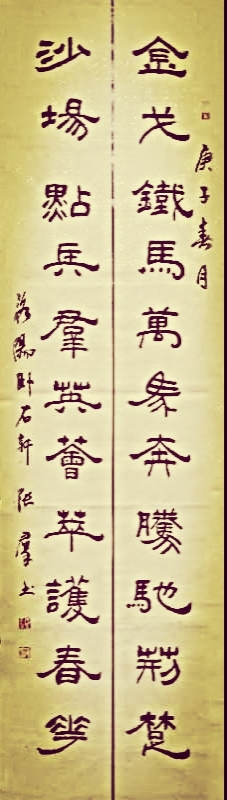 庚子春月
金戈鐵馬萬馬奔騰馳荊楚
沙場點兵羣英薈萃護春華
襄陽卧石軒張羣书